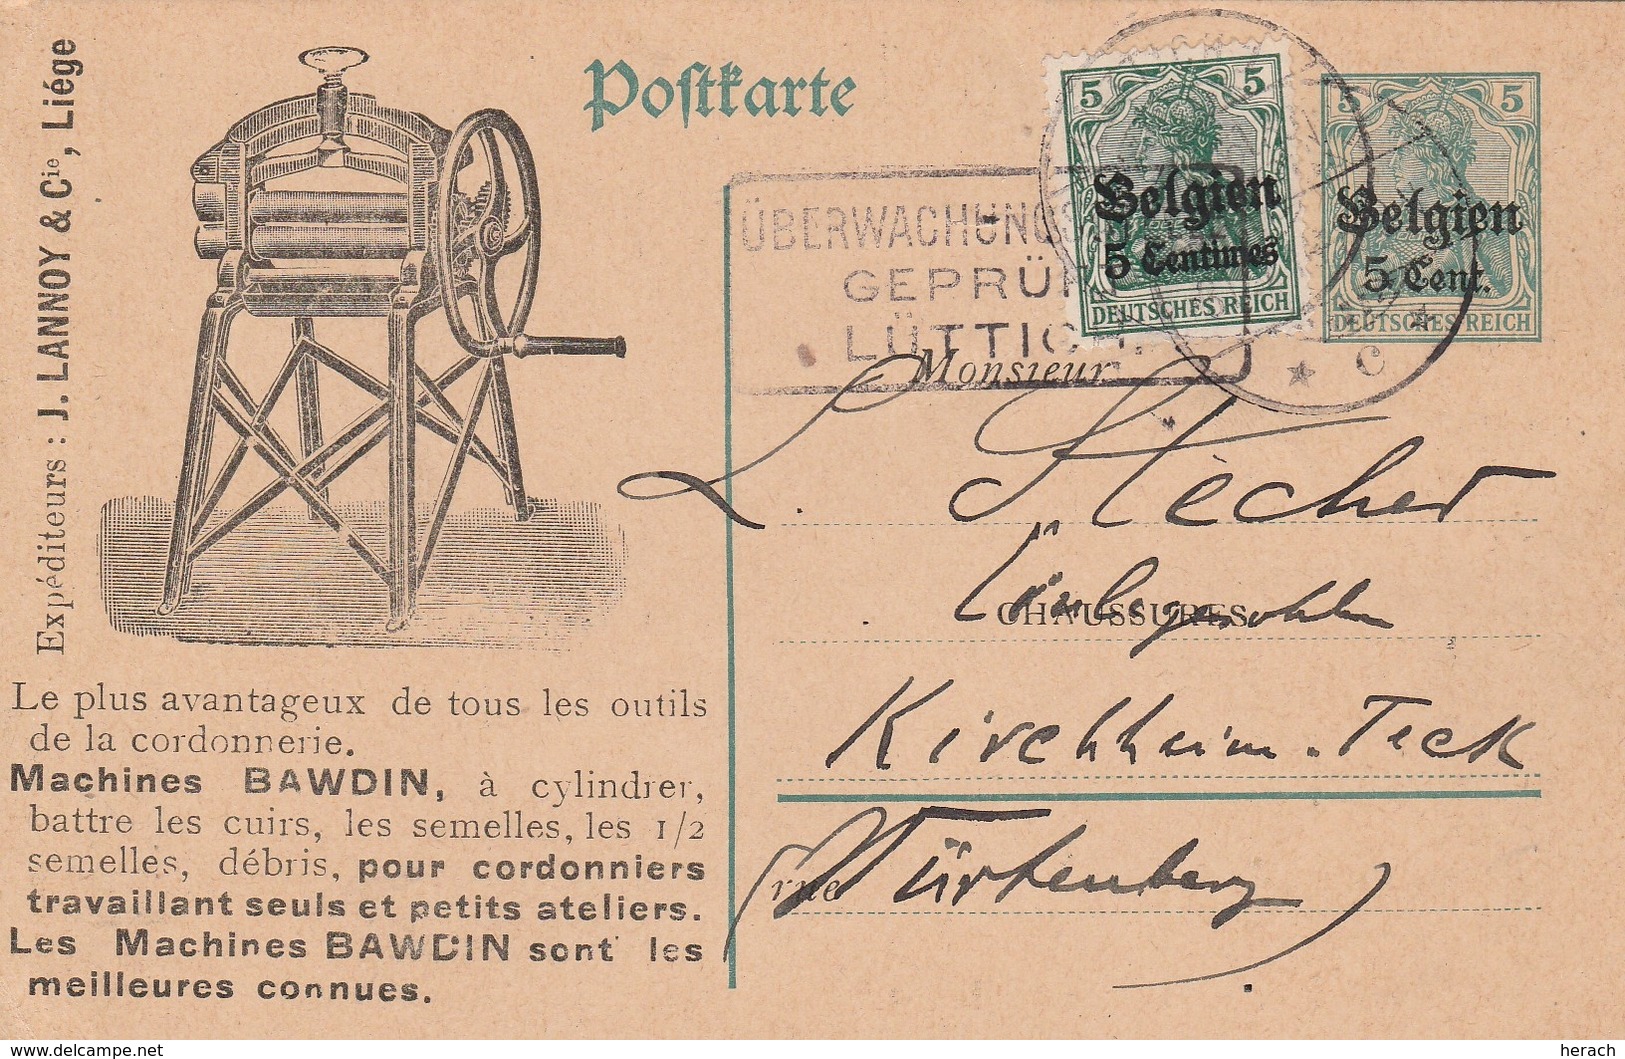 Expéditeurs : J. LANNOY & Cie, Liége
Postkarte
5 5
Belgien
5 Centimes
DEUTSCHES REICH
5 5
Belgien
5 Cent.
DEUTSCHES REICH
ÜBERWACHUNGS
GEPRÜF
LÜTTICH.
* C *
Monsieur
L. Stecher
CHAUSSURES
Kirchheim-Teck
rue
(Württemberg)
Le plus avantageux de tous les outils
de la cordonnerie.
Machines BAWDIN, à cylindrer,
battre les cuirs, les semelles, les 1/2
semelles, débris, pour cordonniers
travaillant seuls et petits ateliers.
Les Machines BAWDIN sont les
meilleures connues.
www.delcampe.net
herach